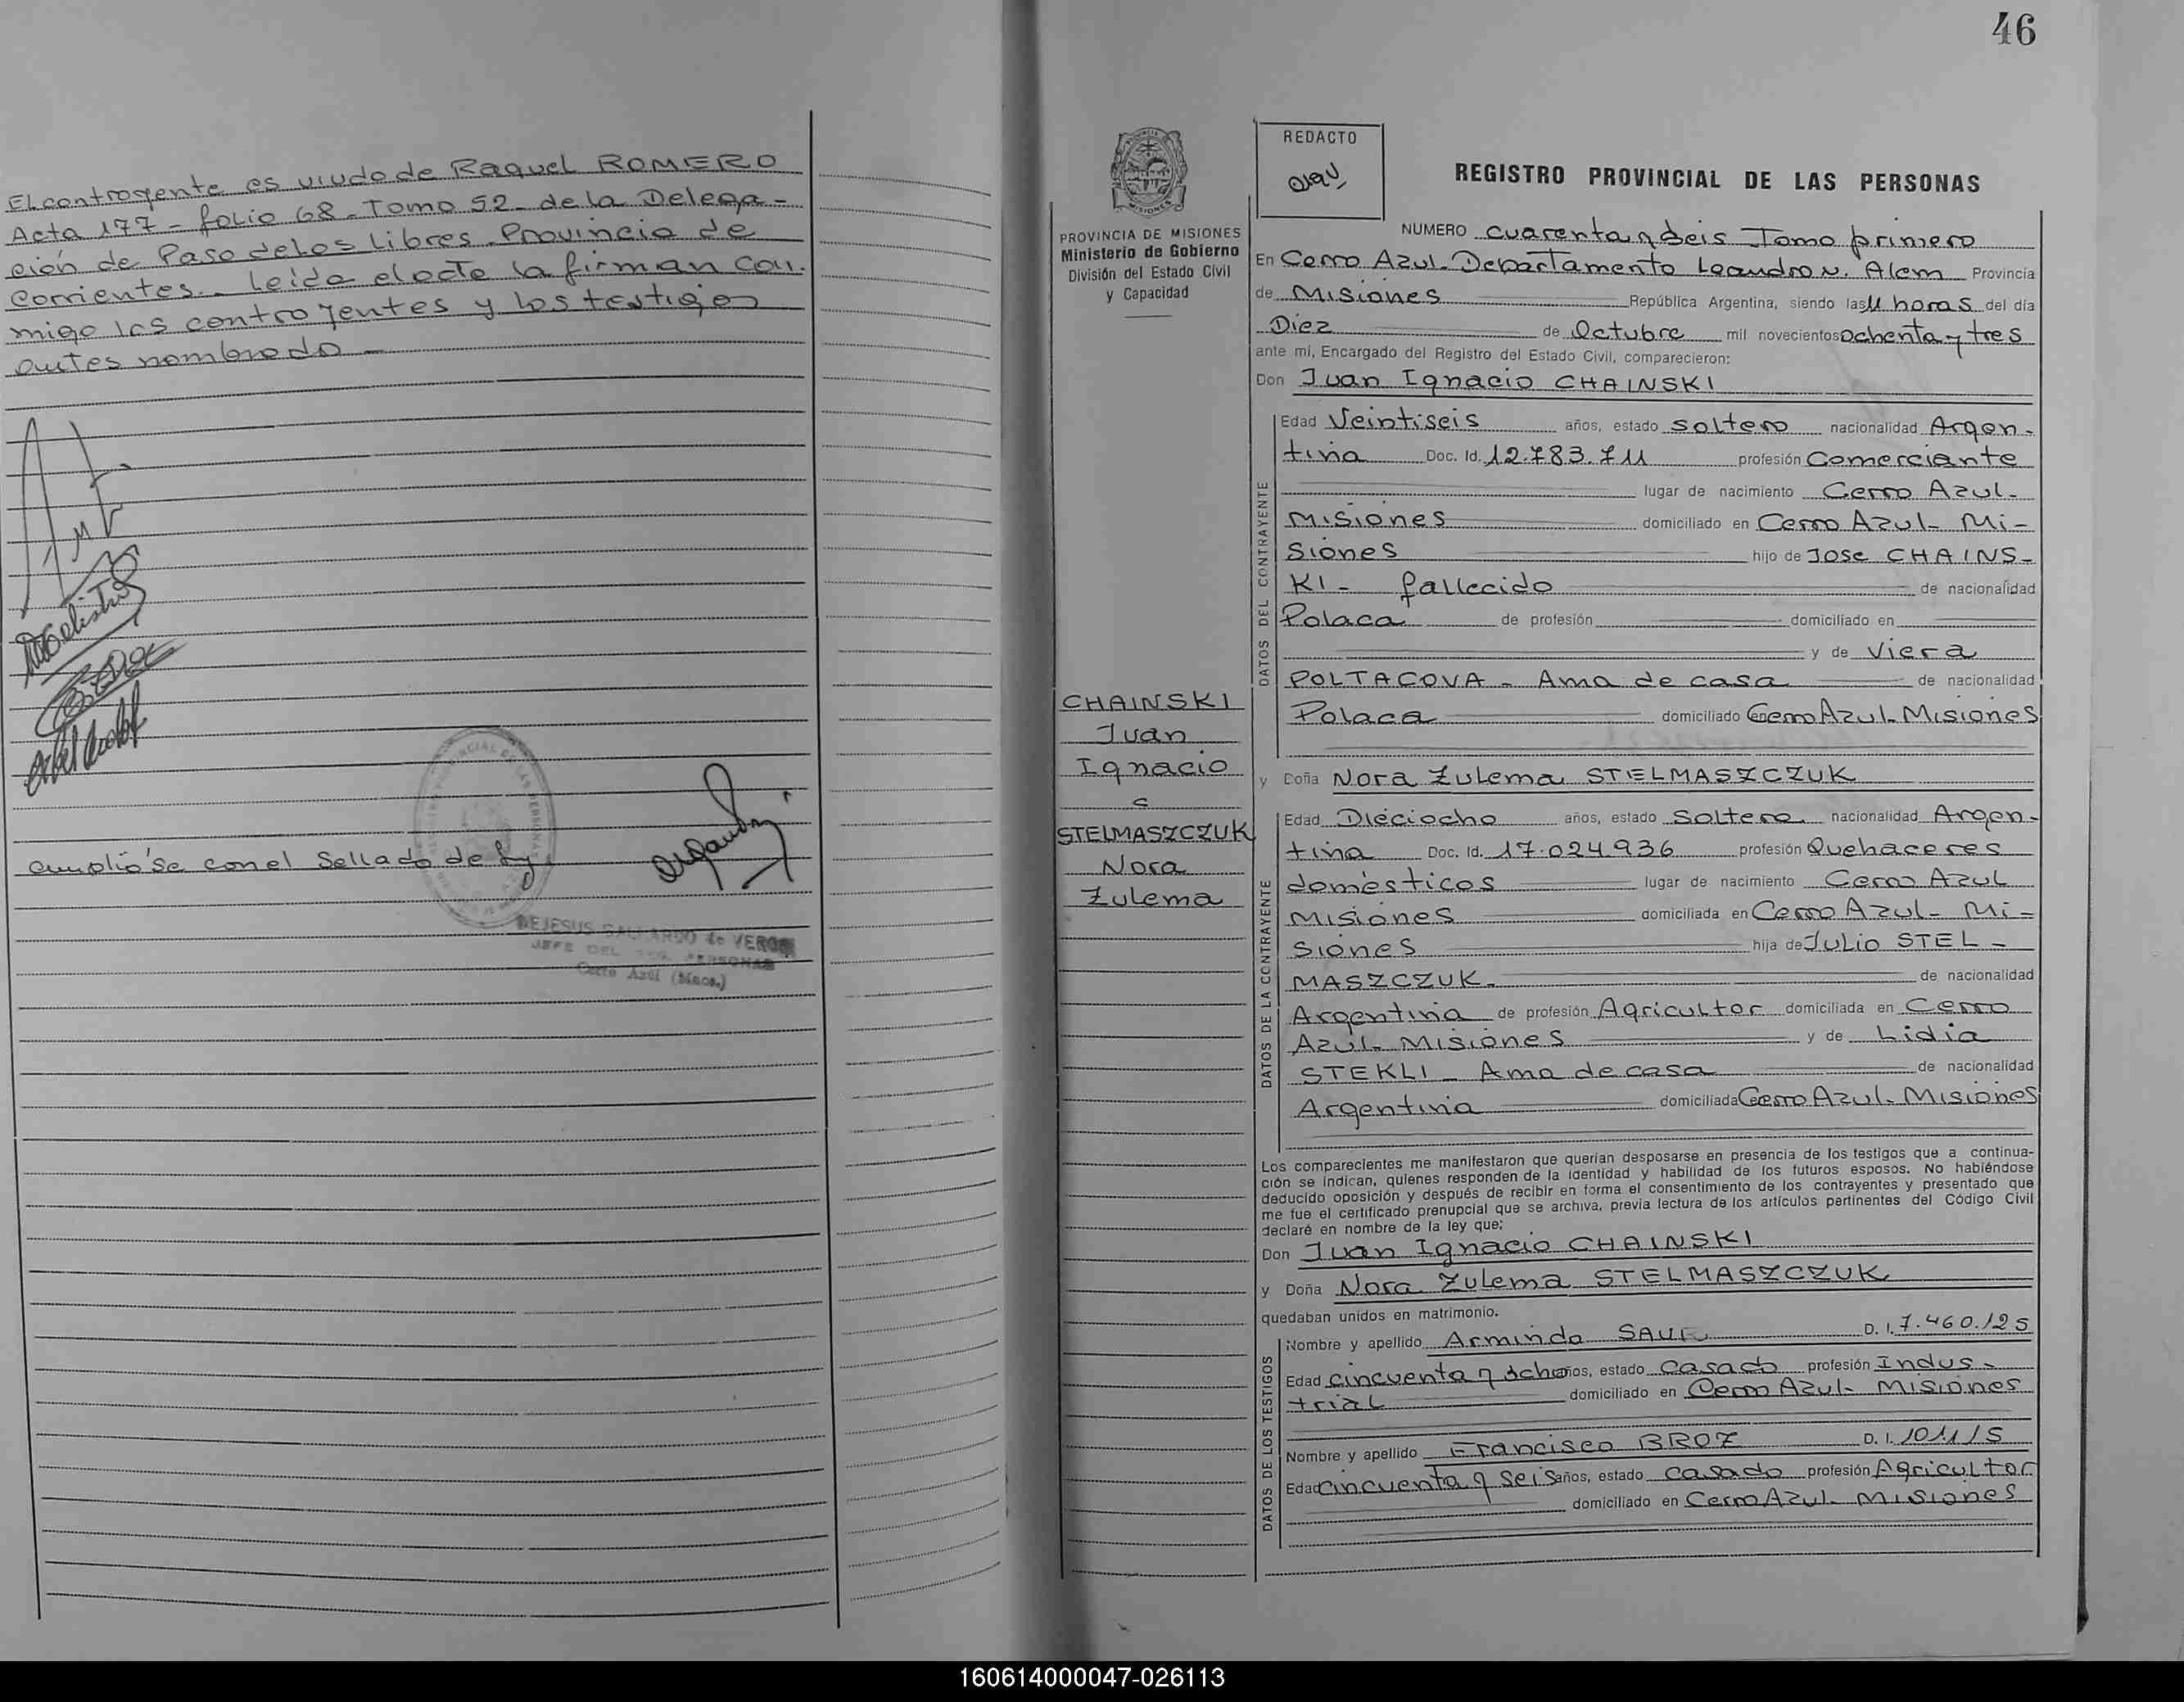 El contrayente es viudo de Raquel ROMERO
Acta 177 - folio 68 - Tomo 52 - de la Delega-
ción de Paso de los Libres. Provincia de
Corrientes. - Leída el acta la firman con-
migo los contrayentes y los testigos
antes nombrado
Cumplióse con el Sellado de Ley
DEJESUS GALLARDO de VERON
JEFE DEL REG. PERSONAS
Cerro Azul (Mnes.)
46
PROVINCIA DE MISIONES
Ministerio de Gobierno
División del Estado Civil
y Capacidad
CHAINSKI
Juan
Ignacio
c
STELMASZCZUK
Nora
Zulema
REDACTO
REGISTRO PROVINCIAL DE LAS PERSONAS
NUMERO cuarenta y seis Tomo primero
En Cerro Azul. Departamento Leandro N. Alem Provincia
de Misiones República Argentina, siendo las 11 horas del día
Diez de Octubre mil novecientos ochenta y tres
ante mí, Encargado del Registro del Estado Civil, comparecieron:
Don Juan Ignacio CHAINSKI
DATOS DEL CONTRAYENTE
Edad Veintiseis años, estado soltero nacionalidad Argen-
tina Doc. Id. 12.783.711 profesión Comerciante
lugar de nacimiento Cerro Azul-
Misiones domiciliado en Cerro Azul- Mi-
siones hijo de Jose CHAINS-
KI - fallecido de nacionalidad
Polaca de profesión domiciliado en
y de Viera
POLTACOVA - Ama de casa de nacionalidad
Polaca domiciliado en Cerro Azul. Misiones
y Doña Nora Zulema STELMASZCZUK
DATOS DE LA CONTRAYENTE
Edad Dieciocho años, estado Soltera nacionalidad Argen-
tina Doc. Id. 17.024.936 profesión Quehaceres
domésticos lugar de nacimiento Cerro Azul
Misiones domiciliada en Cerro Azul- Mi-
siones hija de Julio STEL-
MASZCZUK. de nacionalidad
Argentina de profesión Agricultor domiciliada en Cerro
Azul- Misiones y de Lidia
STEKLI - Ama de casa de nacionalidad
Argentina domiciliada en Cerro Azul. Misiones
Los comparecientes me manifestaron que querían desposarse en presencia de los testigos que a continua-
ción se indican, quienes responden de la identidad y habilidad de los futuros esposos. No habiéndose
deducido oposición y después de recibir en forma el consentimiento de los contrayentes y presentado que
me fue el certificado prenupcial que se archiva, previa lectura de los artículos pertinentes del Código Civil
declaré en nombre de la ley que:
Don Juan Ignacio CHAINSKI
y Doña Nora Zulema STELMASZCZUK
quedaban unidos en matrimonio.
DATOS DE LOS TESTIGOS
Nombre y apellido Armindo D. I. 7.460.125
Edad cincuenta y ocho años, estado casado profesión Indus-
trial domiciliado en Cerro Azul- Misiones
Nombre y apellido Francisco BROZ D. I. 101115
Edad cincuenta y seis años, estado casado profesión Agricultor
domiciliado en Cerro Azul- Misiones
160614000047-026113